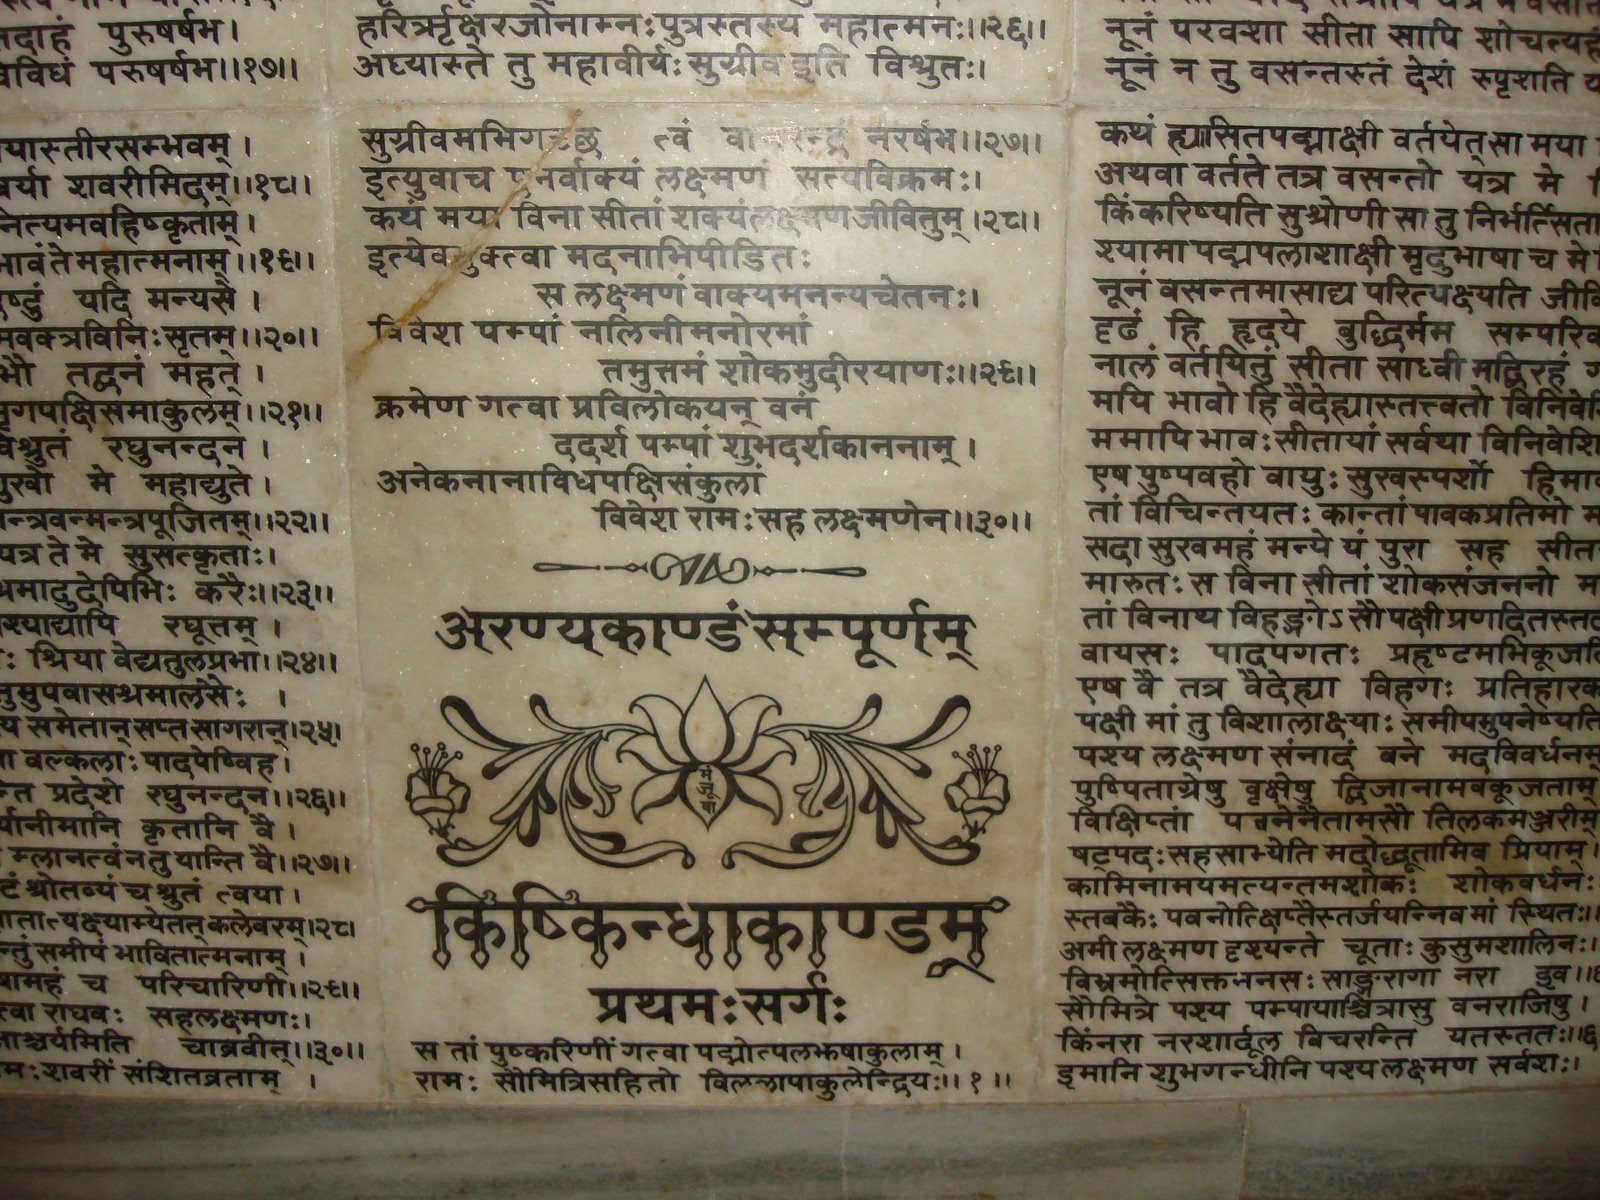 तदाहं पुरुषर्षभ।
विविधं परुषर्षभ।।१७।।
यास्तीरसम्भवम्।
र्या शवरीमिदम्।।१८।।
नित्यमवहिष्कृताम्।
भावं ते महात्मनाम्।।१९।।
ष्टुं यदि मन्यसे।
मवक्त्रविनिःसृतम्।।२०।।
भौ तद्वनं महत्।
मृगपक्षिसमाकुलम्।।२१।।
विश्रुतं रघुनन्दन।
मे महाद्युते।
मन्त्रवन्मन्त्रपूजितम्।।२२।।
यत्र ते मे सुसत्कृताः।
करैः।।२३।।
रघूत्तम्।
श्रिया वेद्यतुलप्रभा।।२४।।
समेतान् सप्त सागरान्।२५।
वल्कलाः पादपेष्विह।
प्रदेशे रघुनन्दन।।२६।।
कृतानि वै।
म्लानत्वं न तु यान्ति वै।।२७।।
श्रोतव्यं च श्रुतं त्वया।
कलेवरम्।२८।
समीपं भावितात्मनाम्।
च परिचारिणी।।२९।।
राघवः सहलक्ष्मणः।
चाब्रवीत्।।३०।।
शवरीं संशितव्रताम्।
हरिरृक्षरजोनाम्नःपुत्रस्तस्य महात्मनः।।२६।।
अध्यास्ते तु महावीर्यः सुग्रीव इति विश्रुतः।
सुग्रीवमभिगच्छ त्वं वानरेन्द्रं नरर्षभ।।२७।।
इत्युवाच पुनर्वाक्यं लक्ष्मणं सत्यविक्रमः।
कथं मया विना सीतां शक्यंलक्ष्मणजीवितुम्।२८।।
इत्येवमुक्त्वा मदनाभिपीडितः
स लक्ष्मणं वाक्यमनन्यचेतनः।
विवेश पम्पां नलिनीमनोरमां
तमुत्तमं शोकमुदीरयाणः।।२९।।
क्रमेण गत्वा प्रविलोकयन् वनं
ददर्श पम्पां शुभदर्शकाननाम्।
अनेकनानाविधपक्षिसंकुलां
विवेश रामः सह लक्ष्मणेन।।३०।।
अरण्यकाण्डं सम्पूर्णम्
मंजूषा
किष्किन्धाकाण्डम्
प्रथमःसर्गः
स तां पुष्करिणीं गत्वा पद्मोत्पलझषाकुलाम्।
रामः सौमित्रिसहितो विललापाकुलेन्द्रियः।। १ ।।
नूनं परवशा सीता सापि शोचत्यहं
नूनं न तु वसन्तस्तं देशं स्पृशति
कथं ह्यसितपद्माक्षी वर्तयेत् सा मया
अथवा वर्तते तत्र वसन्तो यत्र मे
किंकरिष्यति सुश्रोणी सा तु निर्भर्त्सिता
श्यामा पद्मपलाशाक्षी मृदुभाषा च मे
नूनं वसन्तमासाद्य परित्यक्षयति
दृढं हि हृदये बुद्धिर्मम सम्परिव
नालं वर्तयितुं सीता साध्वी मद्विरहं
मयि भावो हि वैदेह्यास्तत्त्वतो विनिवे
ममापि भावःसीतायां सर्वथा विनिवेशि
एष पुष्पवहो वायुः सुखस्पर्शो हिमा
तां विचिन्तयतः कान्तां पावकप्रतिमो
सदा सुखमहं मन्ये यं पुरा सह सीत
मारुतः स विना सीतां शोकसंजननो
तां विनाथ विहङ्गोऽसौ पक्षी प्रणदितस्तद
वायसः पादपगतः प्रहृष्टमभिकूजति
एष वै तत्र वैदेह्या विहगः प्रतिहारक
पक्षी मां तु विशालाक्ष्याः समीपमुपनेष्यति
पश्य लक्ष्मण संनादं वने मदविवर्धनम्
पुष्पिताग्रेषु वृक्षेषु द्विजानामवकूजताम्
विक्षिप्तां पवनेनैतामसौ तिलकमञ्जरीम्
षट्पदःसहसाभ्येति मदोद्धूतामिव प्रियाम्।
कामिनामयमत्यन्तमशोकः शोकवर्धनः
स्तबकैः पवनोत्क्षिप्तैस्तर्जयन्निव मां स्थितः।
अमी लक्ष्मण दृश्यन्ते चूताः कुसुमशालिनः।
विभ्रमोत्सिक्तमनसः साङ्गरागा नरा इव।।
सौमित्रे पश्य पम्पायाश्चित्रासु वनराजिषु।
किंनरा नरशार्दूल विचरन्ति यतस्ततः।।
इमानि शुभगन्धीनि पश्य लक्ष्मण सर्वशः।